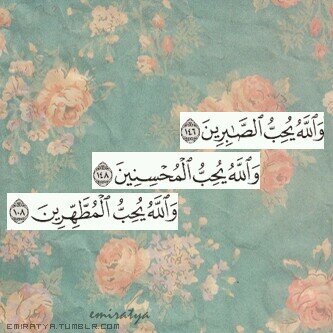 وَٱللَّهُ يُحِبُّ ٱلصَّٰبِرِينَ ١٤٦
وَٱللَّهُ يُحِبُّ ٱلْمُحْسِنِينَ ١٤٨
وَٱللَّهُ يُحِبُّ ٱلْمُطَّهِّرِينَ ١٠٨
emiratya
EMIRATYA.TUMBLR.COM